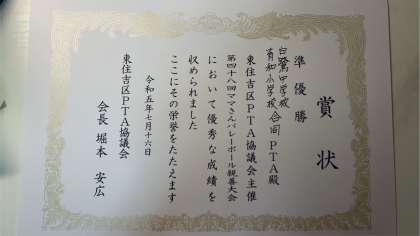 賞状
準優勝
白鷺中学校
育和小学校 合同 PTA殿
東住吉区PTA協議会主催
第四十八回ママさんバレーボール親善大会
において優秀な成績を
収められました
ここにその栄誉をたたえます
令和五年七月十六日
東住吉区PTA協議会
会長 堀本 安広